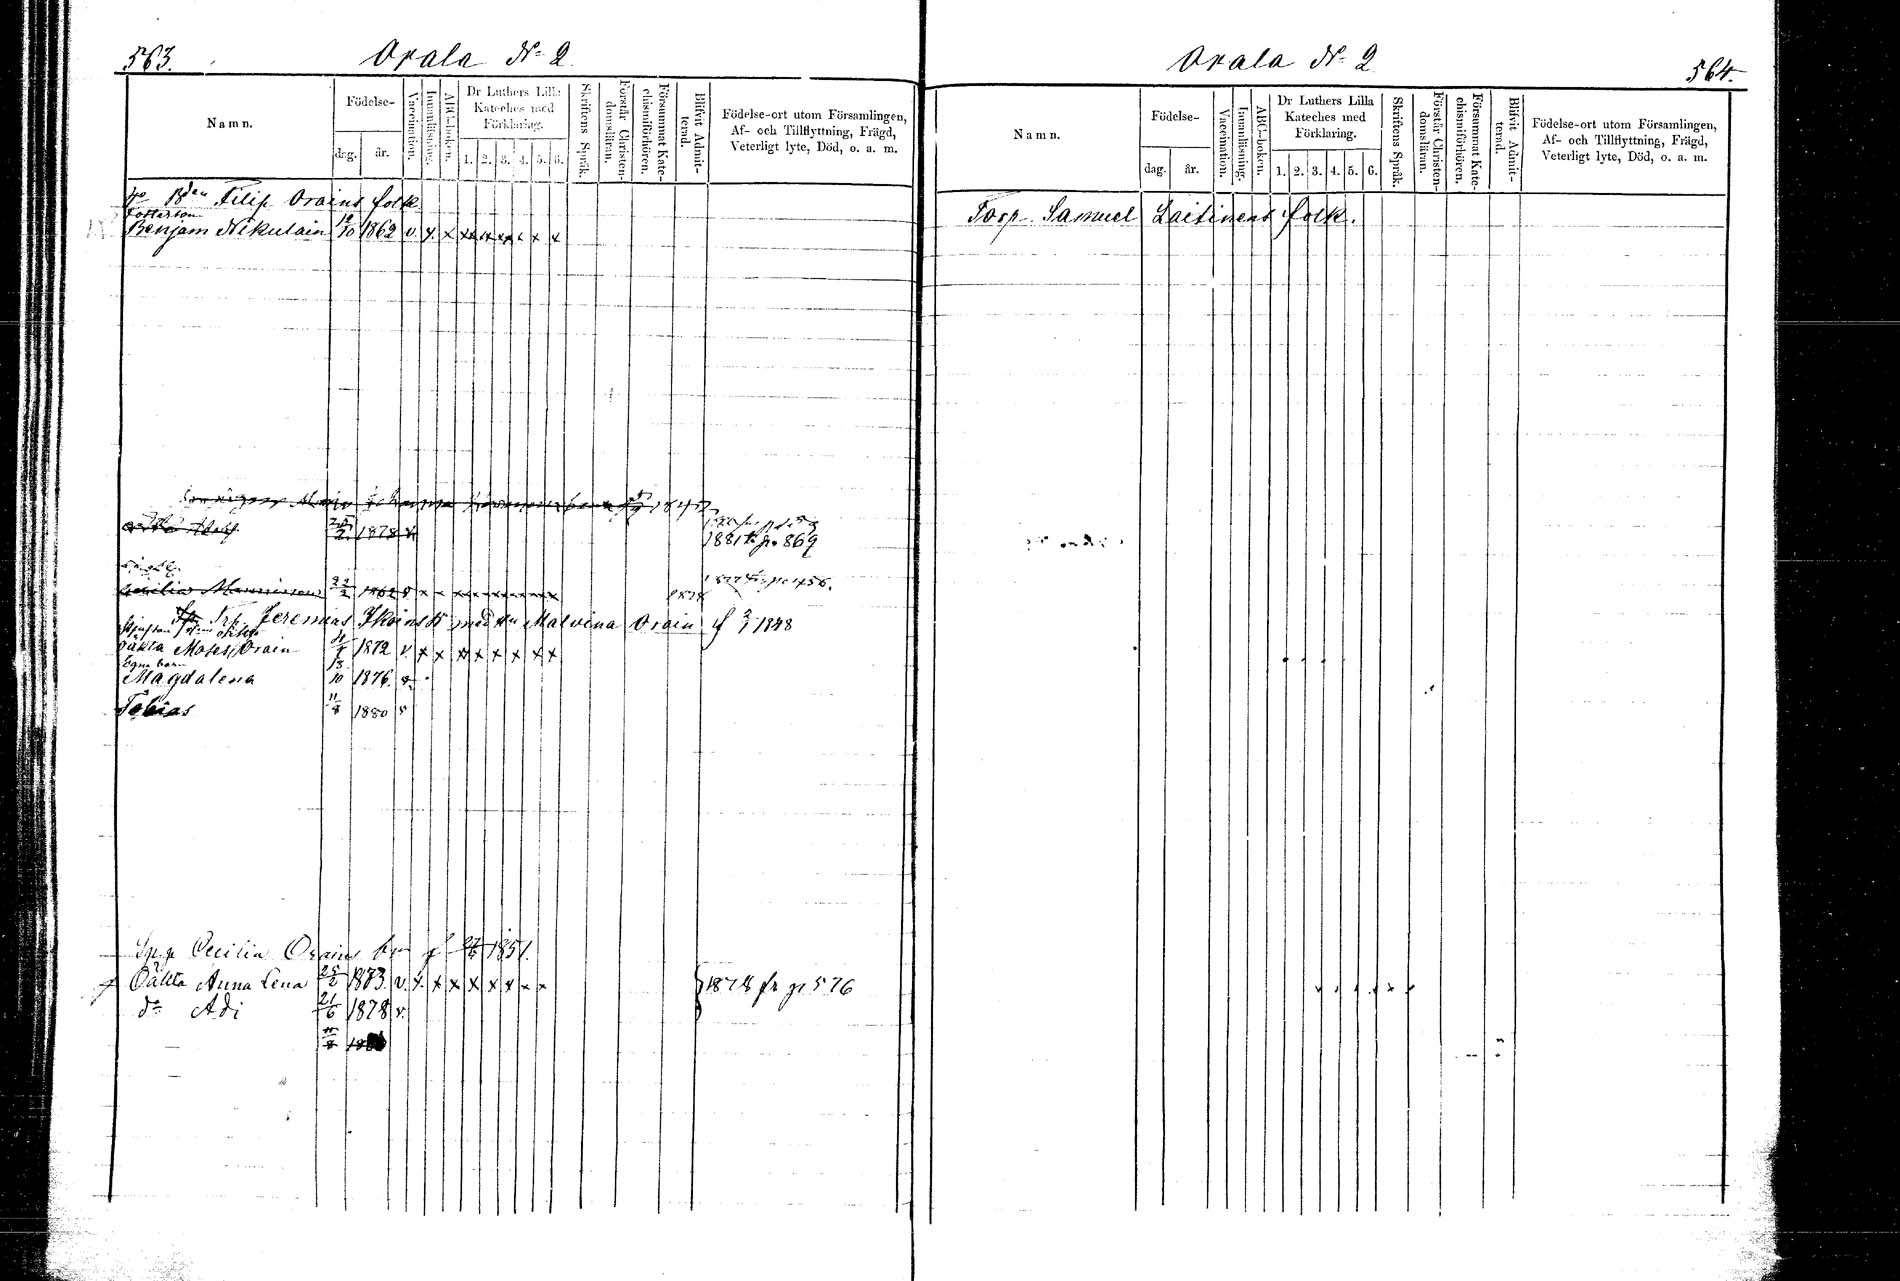 563.
Orala No 2
Namn.
Födelse-
dag. år.
Vaccination.
Innanläsning.
ABC-boken.
Dr Luthers Lilla
Kateches med
Förklaring.
1. 2. 3. 4. 5. 6.
Skriftens Språk.
Förstår Christen-
domsläran.
Försummat Kate-
chismiförhören.
Blifvit Admit-
terad.
Födelse-ort utom Församlingen,
Af- och Tillflyttning, Frägd,
Veterligt lyte, Död, o. a. m.
Filip Orains folk
Fosterson
Benjam Nikulain 12/10 1862 v. x x xx x x x x x
1845
Adolf 1878 v
1881 fr. p. 869
Cecilia Manninen 22/2 1862 v x x x x x x x x 1878
p. 456.
Jeremias Ikoinst Malvina Orain f 2/1 1848
oäkta Moses Orain 1872 v. x x x x x x x x
Egna barn
Magdalena 18/10 1876. v
Tobias 11/8 1880 v
Cecilia Orains f 1851.
Oäkta Anna Lena 25/2 1873. v. x. x x x x x x x
1878 fr p 576
do Adi 21/6 1878 v.
11/8
Orala No 2
564.
Namn.
Födelse-
dag. år.
Vaccination.
Innanläsning.
ABC-boken.
Dr Luthers Lilla
Kateches med
Förklaring.
1. 2. 3. 4. 5. 6.
Skriftens Språk.
Förstår Christen-
domsläran.
Försummat Kate-
chismiförhören.
Blifvit Admit-
terad.
Födelse-ort utom Församlingen,
Af- och Tillflyttning, Frägd,
Veterligt lyte, Död, o. a. m.
Torp. Samuel Laitinens folk.